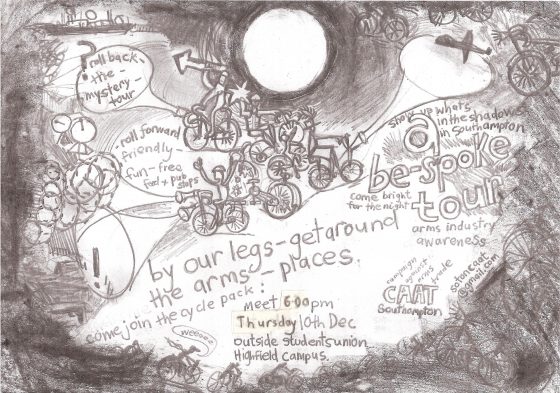 ?
roll back
- the -
mystery -
tour
- roll forward
friendly -
fun - free
feed + pub
stops
!
show up what's
in the shadows
in Southampton
a
be-spoke
tour
come bright
for the night
arms industry
awareness
by our legs - get around
the arms - places
come join the cycle pack:
weeeee
meet 6:00pm
Thursday 10th Dec
outside students union
Highfield campus.
campaign
against
arms
trade
CAAT
Southampton
sotoncaat
@gmail.com